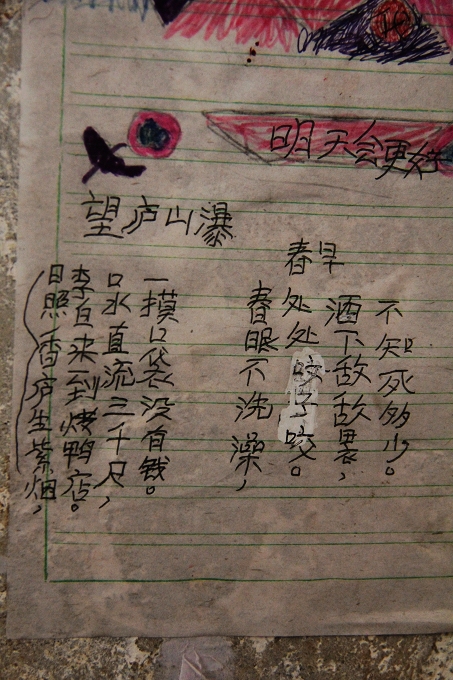 明天会更好
望庐山瀑
日照香庐生紫烟，
李白来到烤鸭店。
口水直流三千尺，
一摸口袋没有钱。
春早
春眠不洗澡，
处处咬子咬。
酒下敌敌裹，
不知死多少。